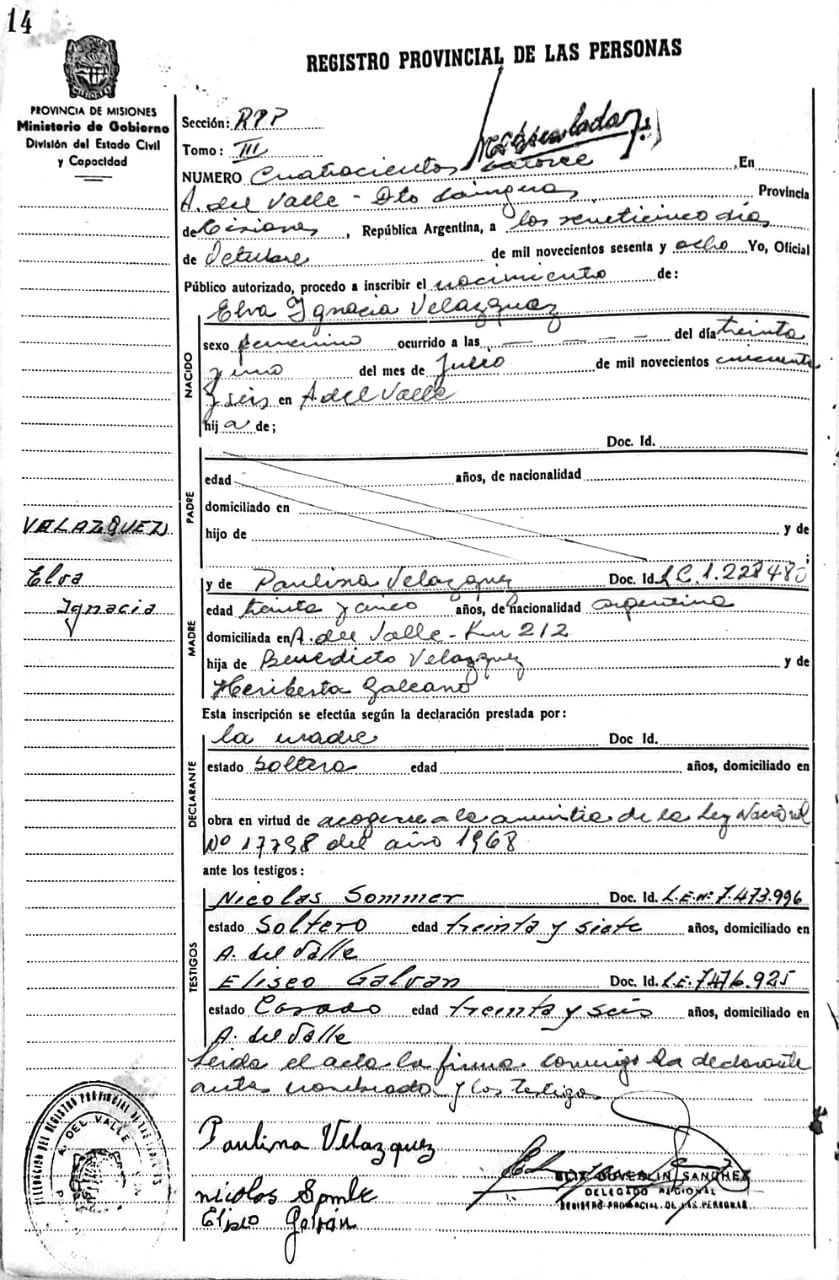 14
REGISTRO PROVINCIAL DE LAS PERSONAS
PROVINCIA DE MISIONES
Ministerio de Gobierno
División del Estado Civil
y Capacidad
Sección: RPP
Tomo: III
NUMERO Cuatrocientos catorce, En
A. del Valle - Dto Provincia
de Misiones, República Argentina, a los veinticinco días
de Octubre de mil novecientos sesenta y ocho Yo, Oficial
Público autorizado, procedo a inscribir el nacimiento de:
Elva Ignacia Velazquez
NACIDO
sexo femenino ocurrido a las — — — — del día treinta
y uno del mes de Julio de mil novecientos cincuenta
y seis en A del Valle
hij a de;
Doc. Id.
PADRE
edad años, de nacionalidad
domiciliado en
hijo de y de
;
VELAZQUEZ
Elva
Ignacia
MADRE
y de Paulina Velazquez Doc. Id. L.C. 1.228.480
edad treinta y cinco años, de nacionalidad argentina
domiciliada en A. del Valle - Km 212
hija de Benedicto Velazquez y de
Heriberta Galeano
Esta inscripción se efectúa según la declaración prestada por:
DECLARANTE
la madre Doc Id.
estado Soltera edad años, domiciliado en
obra en virtud de acogerse a la amnistia de la Ley Nacional
Nº 17798 del año 1968
ante los testigos:
TESTIGOS
Nicolas Sommer Doc. Id. L.E. Nº 7.473.996
estado Soltero edad treinta y siete años, domiciliado en
A. del Valle
Eliseo Galvan Doc. Id. L.E. 7476.925
estado Casado edad treinta y seis años, domiciliado en
A. del Valle
Leida el acta la firma conmigo la declarante
antes nombrada y los testigos
Paulina Velazquez
nicolas
Eliseo Galván
SANCHEZ
DELEGADO REGIONAL
REGISTRO PROVINCIAL DE LAS PERSONAS
A. DEL VALLE